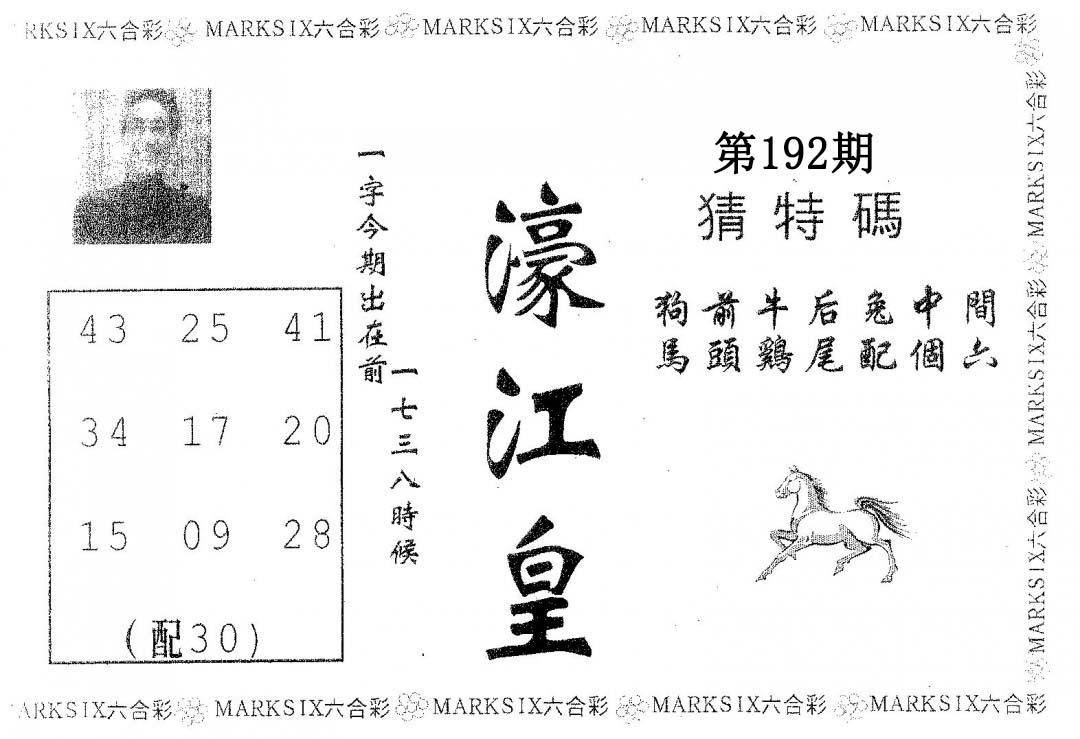 RKSIX六合彩 MARKSIX六合彩 MARKSIX六合彩 MARKSIX六合彩 MARKSIX六合彩
第192期
猜特碼
狗前牛后兔中間
馬頭鷄尾配個六
濠江皇
一字今期出在前
一七三八時候
43 25 41
34 17 20
15 09 28
(配30)
MARKSIX六合彩 MARKSIX六合彩 MARKSIX六合彩
ARKSIX六合彩 MARKSIX六合彩 MARKSIX六合彩 MARKSIX六合彩 MARKSIX六合彩